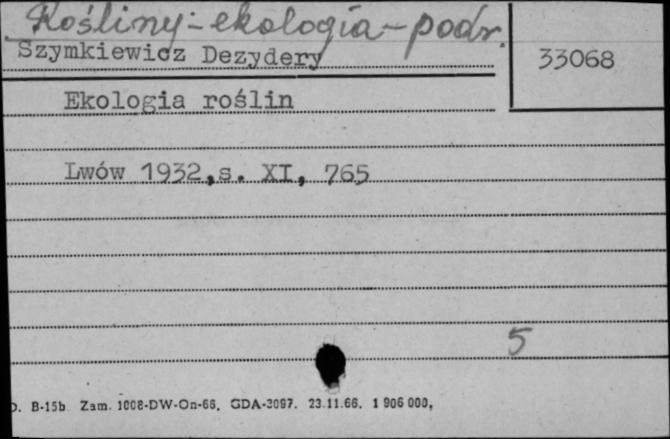 Rośliny - ekologia - podr.
Szymkiewicz Dezydery
33068
Ekologia roślin
Lwów 1932,s. XI, 765
5
D. B-15b Zam. 1008-DW-On-66, GDA-3097. 23.11.66. 1 906 000,